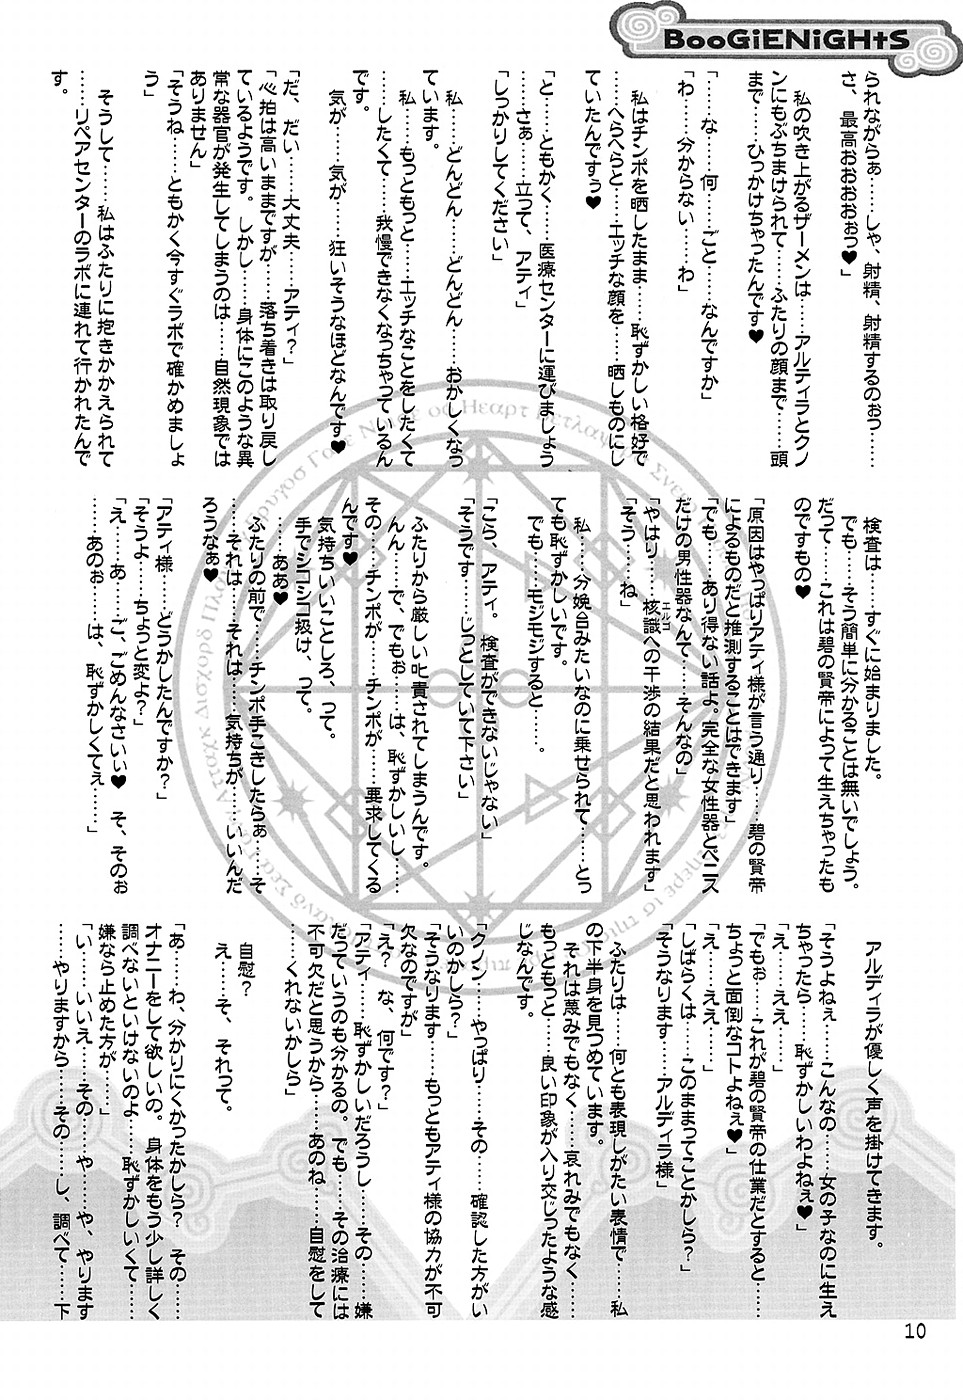 BooGiENiGHtS
られながらぁ……しゃ、射精、射精するのぉっ……
さ、最高おおおおぉっ♥」
　私の吹き上がるザーメンは……アルディラとクノ
ンにもぶちまけられて……ふたりの顔まで……頭
まで……ひっかけちゃったんです♥
「……な……何……ごと……なんですか」
「わ……分からない……わ」
　私はチンポを晒したまま……恥ずかしい格好で
……へらへらと……エッチな顔を……晒しものにし
ていたんですぅ♥
「と……ともかく……医療センターに運びましょう
……さぁ……立って、アティ」
「しっかりしてください」
　私……どんどん……どんどん……おかしくなっ
ています。
　私……もっともっと……エッチなことをしたくて
……したくて……我慢できなくなっちゃっているん
です。
　気が……気が……狂いそうなほどなんです♥
「だ、だい……大丈夫……アティ？」
「心拍は高いままですが……落ち着きは取り戻し
ているようです。しかし……身体にこのような異
常な器官が発生してしまうのは……自然現象では
ありません」
「そうね……ともかく今すぐラボで確かめましょ
う」
　そうして……私はふたりに抱きかかえられて
……リペアセンターのラボに連れて行かれたんで
す。
　検査は……すぐに始まりました。
　でも……そう簡単に分かることは無いでしょう。
だって……これは碧の賢帝によって生えちゃったも
のですもの♥
「原因はやっぱりアティ様が言う通り……碧の賢帝
によるものだと推測することはできます」
「でも……あり得ない話よ。完全な女性器とペニス
だけの男性器なんて……そんなの」
「やはり……核識への干渉の結果だと思われます」
エルゴ
「そう……ね」
　私……分娩台みたいなのに乗せられて……とっ
ても恥ずかしいです。
　でも……モジモジすると……。
「こら、アティ。検査ができないじゃない」
「そうです……じっとしていて下さい」
　ふたりから厳しい叱責されてしまうんです。
　んん……で、でもぉ……は、恥ずかしいし……
その……チンポが……チンポが……要求してくる
んです♥
　気持ちいいことしろ、って。
　手でシコシコ扱け、って。
　……ああ♥
　ふたりの前で……チンポ手こきしたらぁ……そ
……それは……それは……気持ちが……いいんだ
ろうなぁ♥
「アティ様……どうかしたんですか？」
「そうよ……ちょっと変よ？」
「え……あ……ご、ごめんなさいぃ♥　そ、そのぉ
……あのぉ……は、恥ずかしくてぇ……」
　アルディラが優しく声を掛けてきます。
「そうよねぇ……こんなの……女の子なのに生え
ちゃったら……恥ずかしいわよねぇ♥」
「え……ええ……」
「でもぉ……これが碧の賢帝の仕業だとすると……
ちょっと面倒なコトよねぇ♥」
「え……ええ……」
「しばらくは……このままってことかしら？」
「そうなります……アルディラ様」
　ふたりは……何とも表現しがたい表情で……私
の下半身を見つめています。
　それは蔑みでもなく……哀れみでもなく……
もっともっと……良い印象が入り交じったような感
じなんです。
「クノン……やっぱり……その……確認した方がい
いのかしら？」
「そうなります……もっともアティ様の協力が不可
欠なのですが」
「え？　な、何です？」
「アティ……恥ずかしいだろうし……その……嫌
だっていうのも分かるの。でも……その治療には
不可欠だと思うから……あのね……自慰をして
……くれないかしら」
　自慰？
　え……そ、それって。
「あ……わ、分かりにくかったかしら？　その……
オナニーをして欲しいの。身体をもう少し詳しく
調べないといけないのよ……恥ずかしいくて……
嫌なら止めた方が……」
「い……いいえ……その……や……や、やります
……やりますから……その……し、調べて……下
10